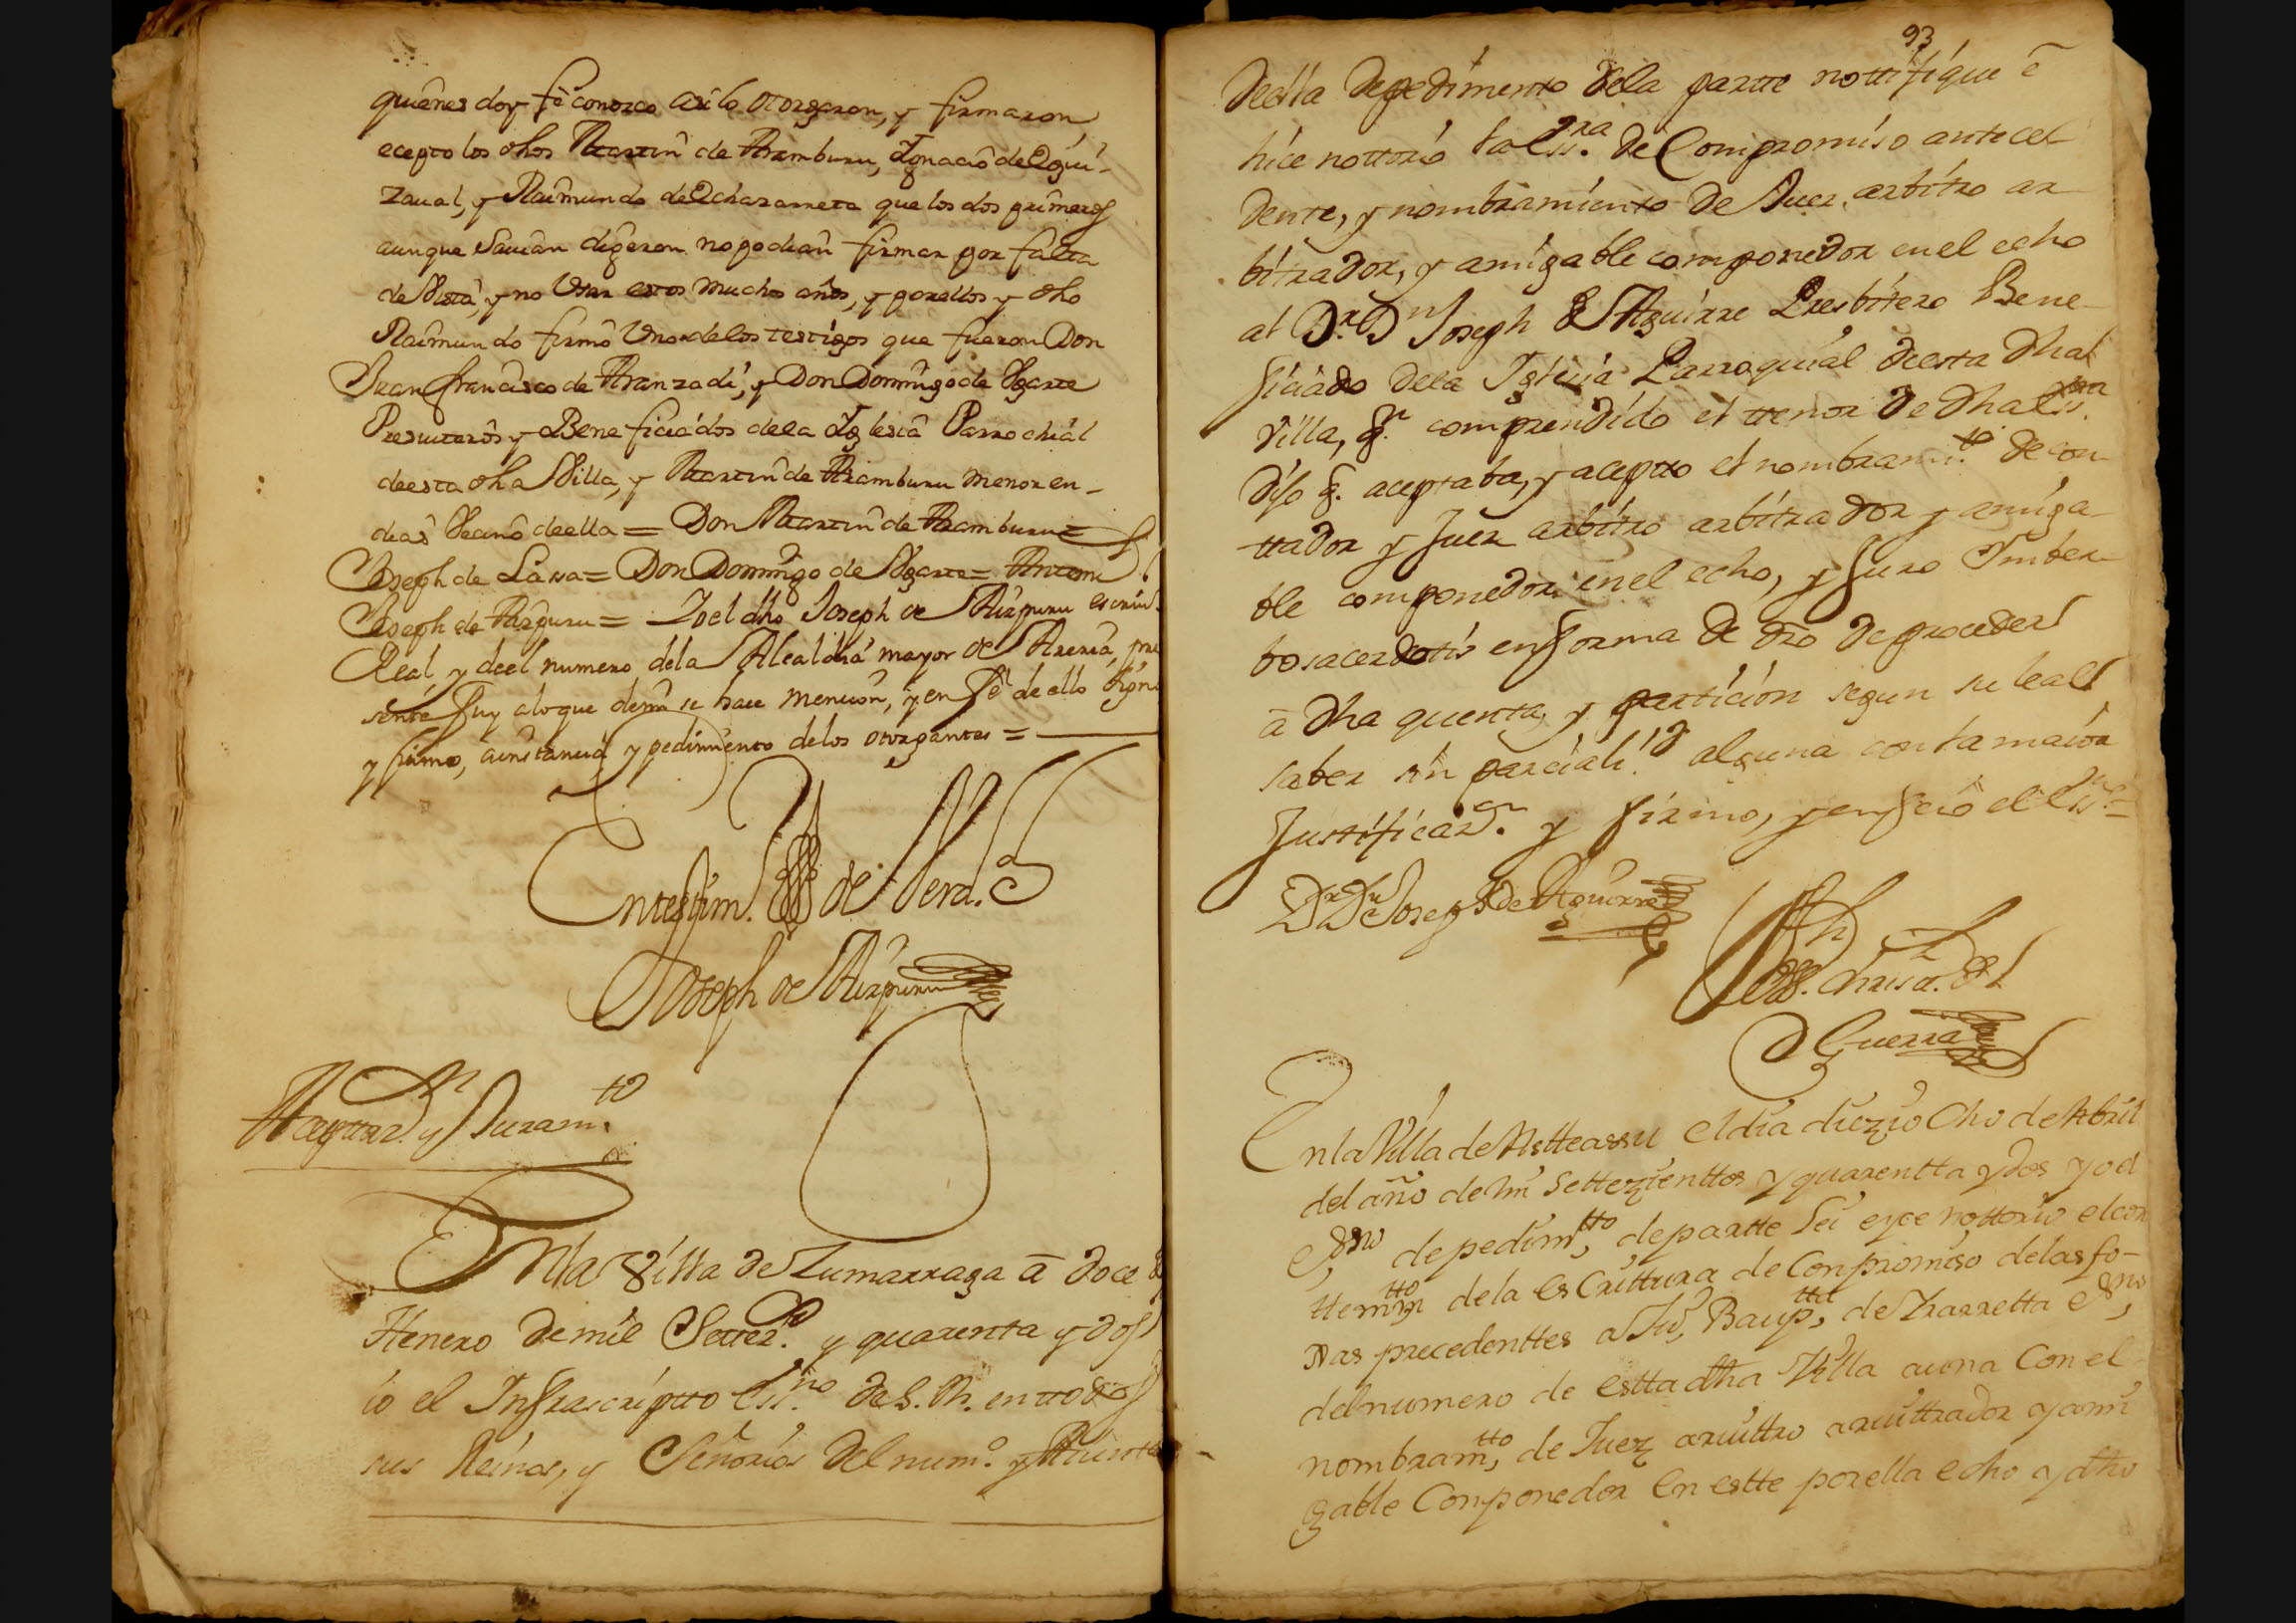 quienes doy fè conozco asi lo otorgaron, y firmaron
ecepto los dhos Martin de Aramburu, Ignacio de Eguí-
zaual, y Raimundo de Echazarreta que los dos primeros
aunque Sauian digeron no podian firmar por falta
de Vista, y no Usar estos muchos años, y por ellos y dho
Raimundo firmò Uno de los testigos que fueron Don
Juan francisco de Aranzadi, y Don Domingo de Ugarte
Presuiteros y Beneficiados de la Iglesia Parrochial
de esta dha Villa, y Martin de Aramburu menor en
dias Vecino de ella = Don Martin de Aramburu =
Joseph de Lasa = Don Domingo de Ugarte = Antemi
Joseph de Aizpuru = Io el dho Joseph de Aizpuru escriu.
Real, y de el numero de la Alcaldia mayor de Areria, pre
sente fuy a lo que de mi se hace mencion, y en fè de ello signo
y firmo, a instancia y pedimiento de los otorgantes =
En testim. de Verd.
Joseph de Aizpuru
Azeptaz.n y Juram.to
En la Villa de Zumarraga â doce de
Henero de mil Settez.s y quarenta y dos
io el Infrascriptto Ess.no de S. M. en ttodos
sus Reinos, y Señorios del num.o y Aiuntta
93
de ella de pedimento de la partte nottifique è
hice nottorio la Ess.ra de Compromiso antece
dente, y nombramiento de Juez, arbitro ar
bitrador, y amigable componedor en el echo
al D.r D.n Joseph de Aguirre Presbitero Bene
ficiado de la Iglesia Parroquial de esta dha
Villa, q.n comprendido el ttenor de dha Ess.ra
dijo q. aceptaba, y aceptto el nombrami.to de con
ttador y Juez arbitro arbitrador y amiga
ble componedor en el echo, y Juro Inber
bo sacerdotis en forma de dro de proceder
â dha quenta, y partición segun su leal
saber sin parciali.d alguna con la maior
Justificaz.on y firmo, y en fee io el Ess.no =
D.r D.n Joseph de Aguirre
Guerra
En la Villa de Astteassu el dia diez io Cho de Abril
del año de mil Settezienttos y quarentta y dos yo el
es.no de pedim.tto de partte lei e yce nottorio el con
ttenim.tto de la esCrittura de Conpromiso de las fo-
xas precedenttes a Ju.o Baup.tta de Yzarretta es.no
del numero de estta dha Villa a una Con el
nombram.tto de Juez aruittro aruittrador y ami
gable Conponedor en estte por ella echo y dho